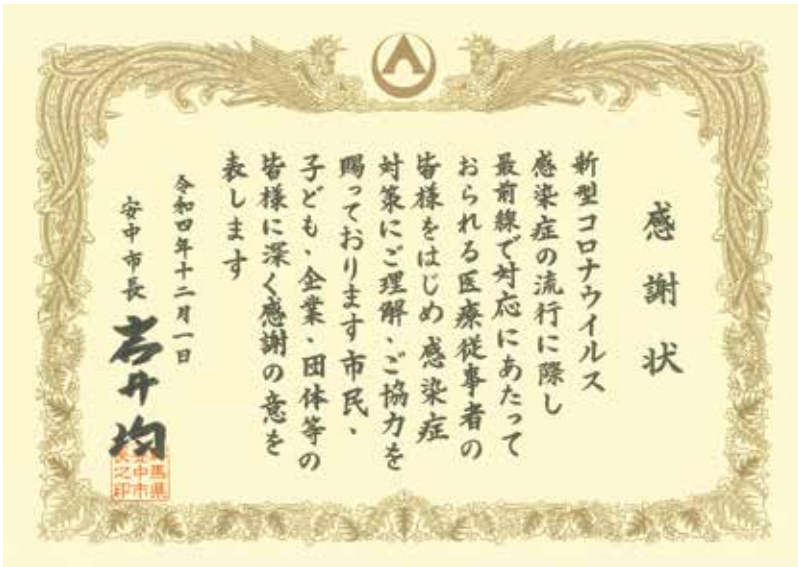 感謝状
新型コロナウイルス
感染症の流行に際し
最前線で対応にあたって
おられる医療従事者の
皆様をはじめ感染症
対策にご理解・ご協力を
賜っております市民、
子ども、企業・団体等の
皆様に深く感謝の意を
表します
令和四年十二月一日
安中市長 岩井均
馬県
安中市
長之印